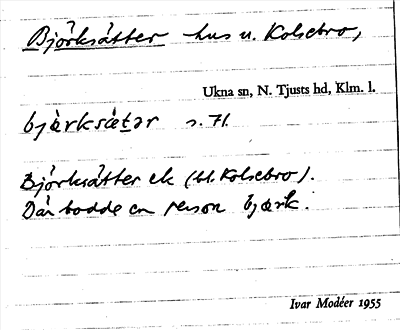 Björksätter hus u. Kolsebro,
Ukna sn, N. Tjusts hd, Klm. l.
bjærksætər s. 71.
Björksätter ek (bl. Kolsebro).
Där bodde en person bjærk.
Ivar Modéer 1955